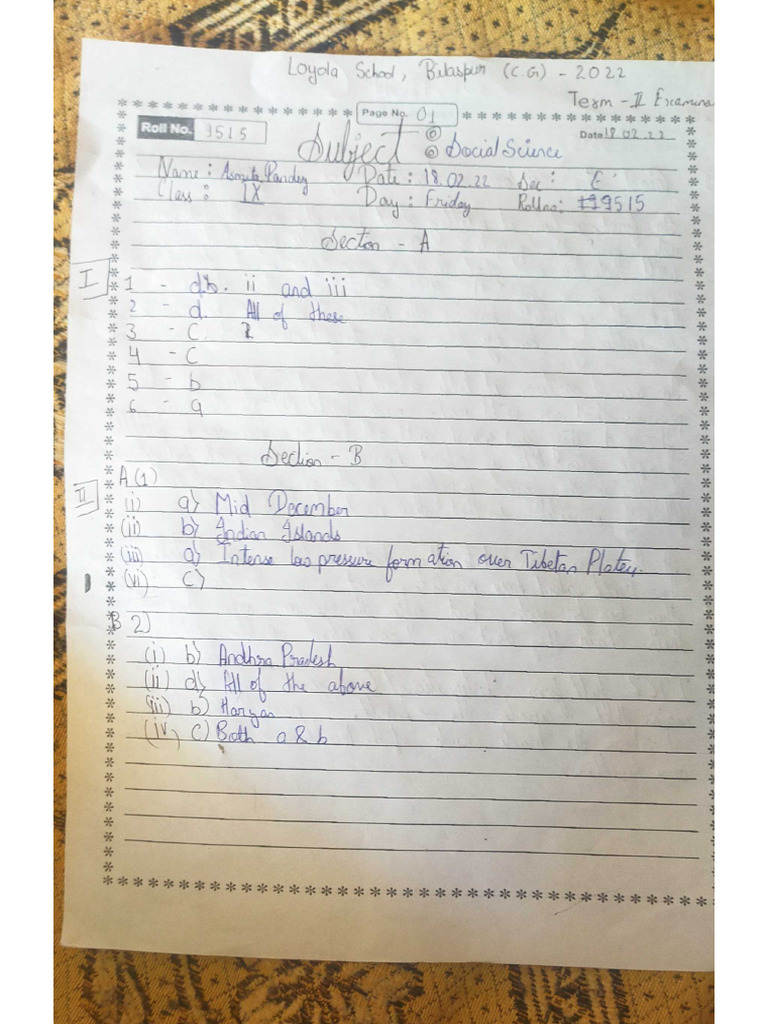 Loyola School, Bilaspur (C.G) - 2022
Term - II Examina
Page No. 01
Roll No. 9515
Date 18.02.22
Subject : Social Science
Name : Asmita Pandey Date : 18.02.22 Sec : E
Class : IX Day : Friday Rollno: 19515
Section - A
I
1 - d.b. ii and iii
2 - d. All of these
3 - C.
4 - C
5 - b
6 - a
Section - B
A (1)
II
(i) a) Mid December
(ii) b) Indian Islands
(iii) a) Intense low pressure formation over Tibetan Plateu.
(vi) c)
B 2)
(i) b) Andhra Pradesh
(ii) d) All of the above
(iii) b) Haryan
(iv) c) Both a & b